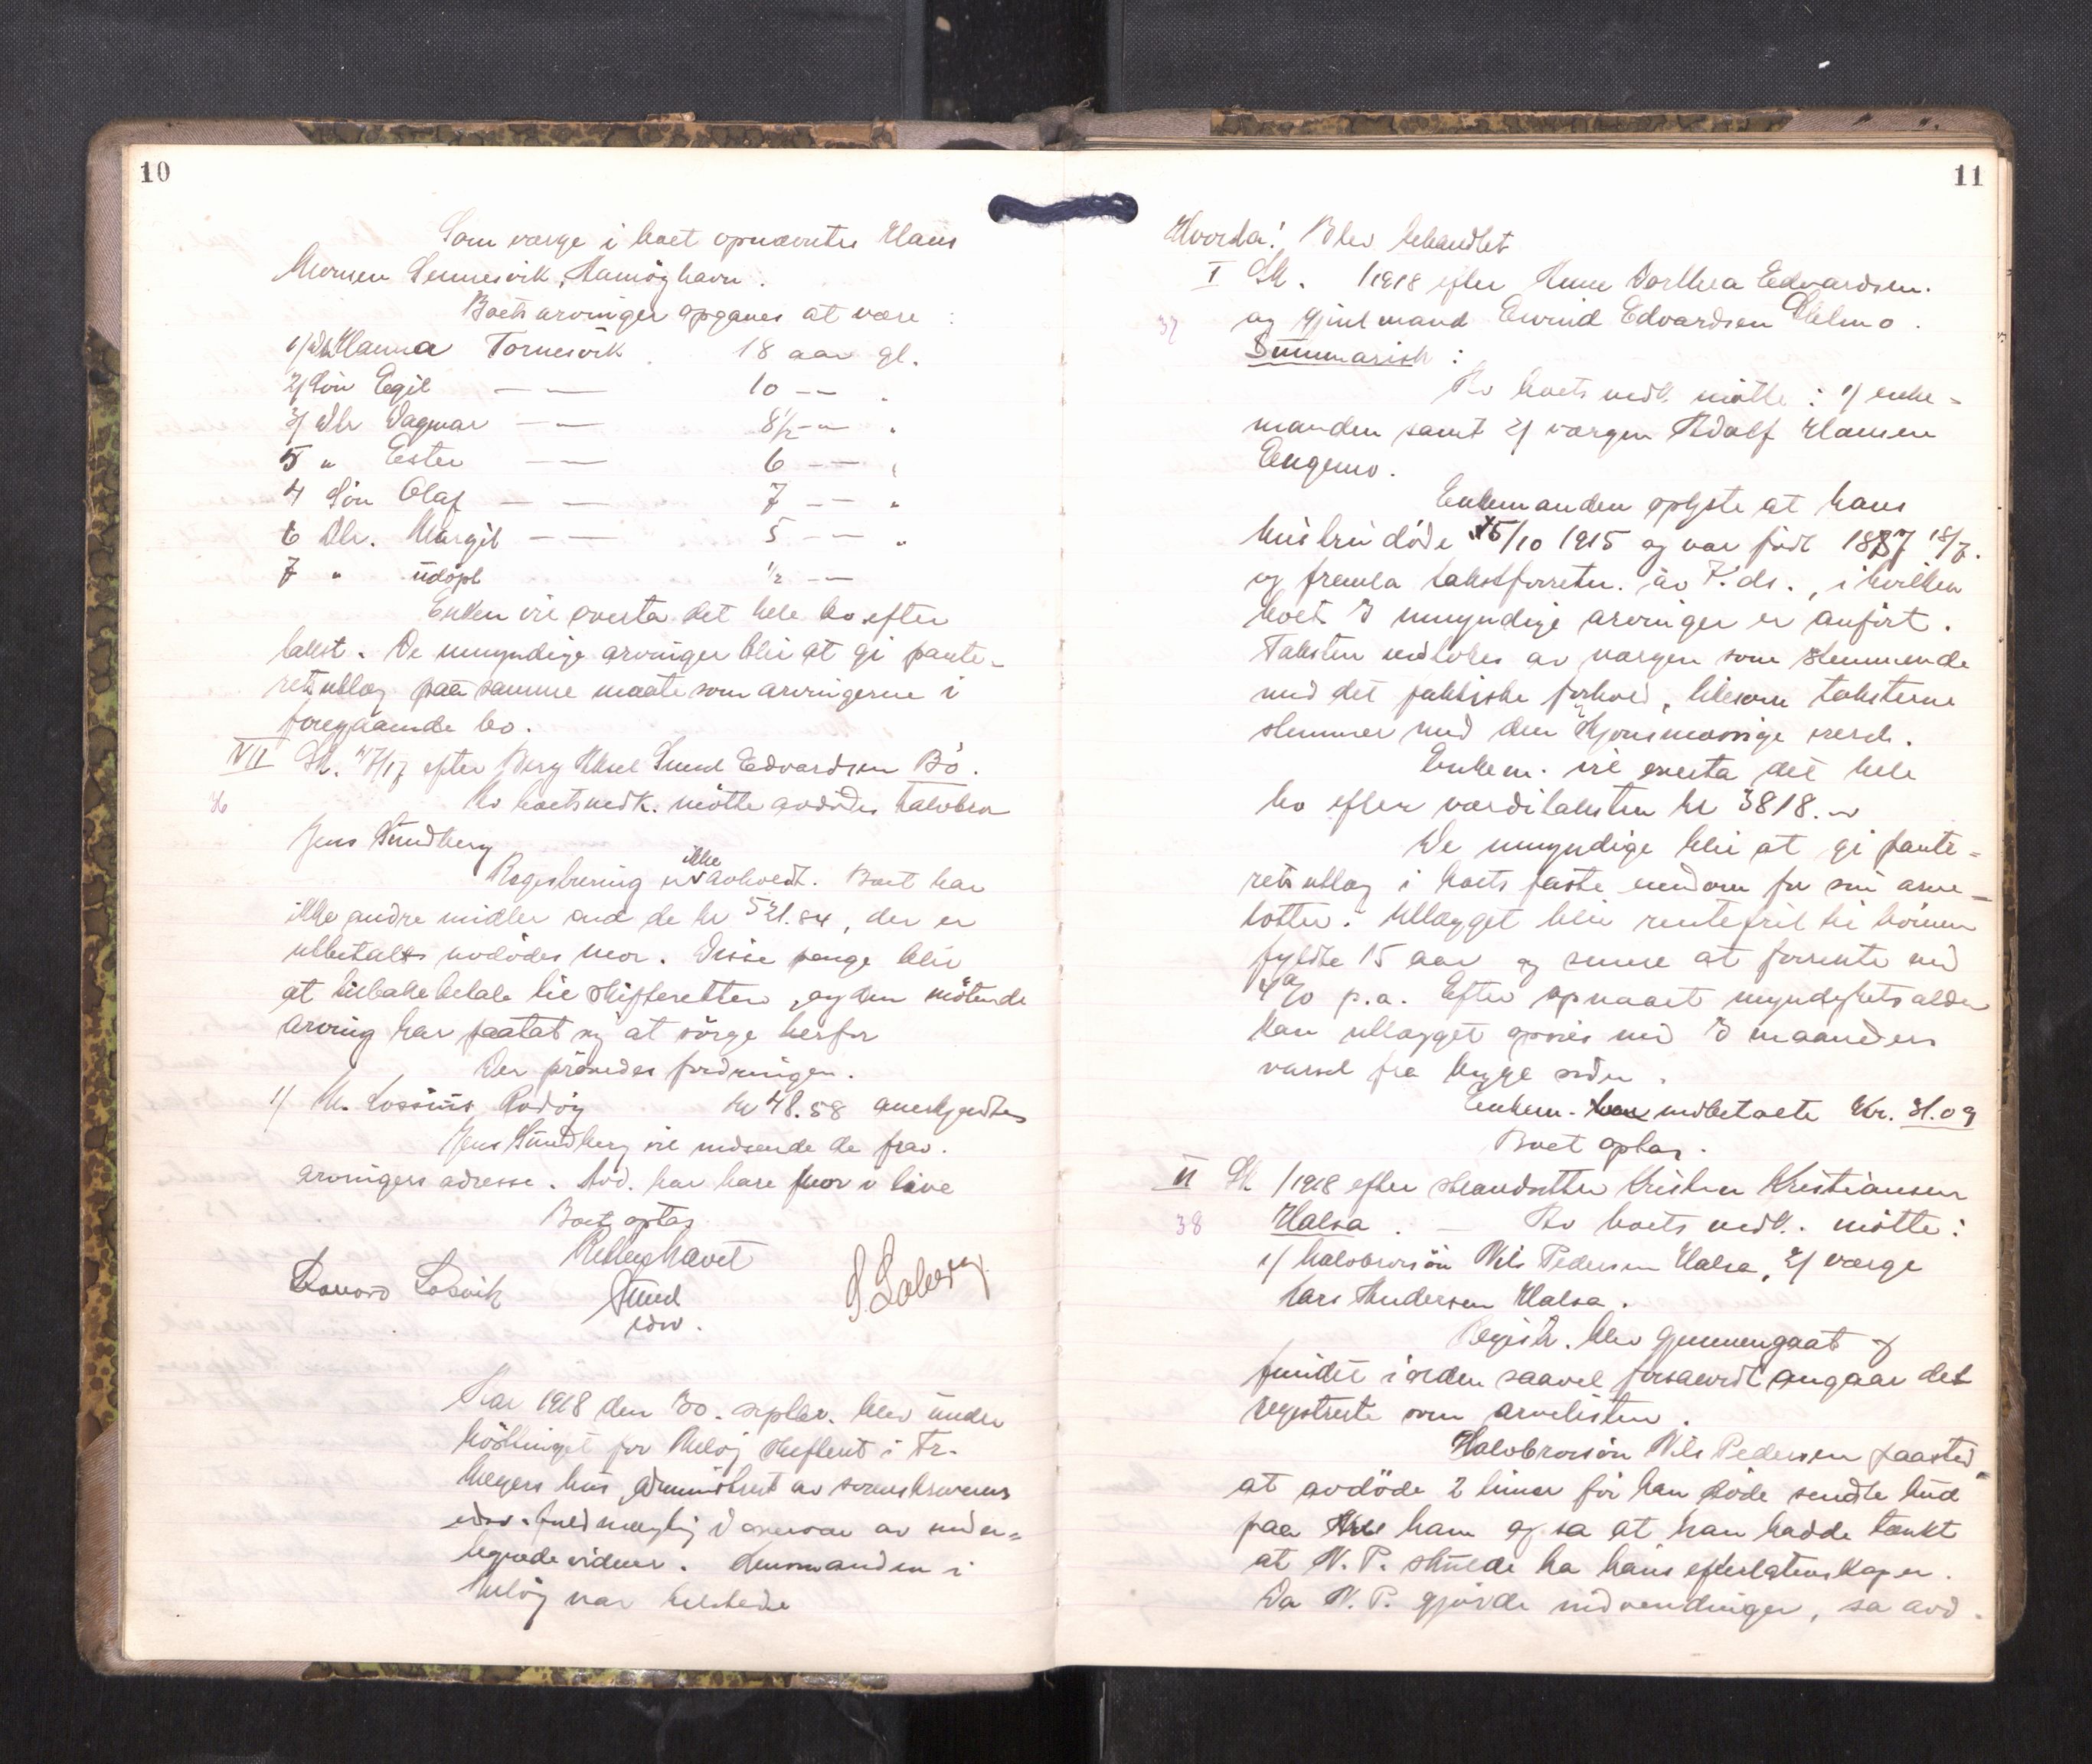 10
Som værge i boet opnævntes Hans
Monsen Sennesvik, Støtt havn.
Boets arvinger opgaves at være :
1/ dtr Hanna Tornesvik 18 aar gl.
2/ Søn Egil — — 10 — "
3/ dtr Dagmar — — 8 1/2 — "
5 " Ester — — 6 — "
4 Søn Olaf — — 7 — "
6 Dtr. Margit — — 5 — "
7 " udøpt 1/2 —
Enken vil overta det hele bo efter
takst. De umyndige arvinger blir at gi pante-
retsutlæg paa samme maate som arvingerne i
foregaaende bo.
VII Sk. /17 efter Edvardsen Bö.
36 Av boets vedk. møtte avdødes halvbror
Jens Sundberg
Registrering er ikke avholdt. Boet har
ikke andre midler end de kr 521.84, der er
utbetalt avdødes mor. Disse penge blir
at tilbakebetale til skifteretten, og den møtende
arving har paatat sig at sørge herfor
Der prøvedes fordringen.
1/ Rødøy kr 48.58 anerkjendtes
Jens Sundberg vil indsende de frav.
arvingers adresse. Avd. har bare mor i live
Boet optas.
Retten hævet
Edvard Løsvik Sund S. Solberg
edsv.
Aar 1918 den 30. septbr. blev under
høsttinget for Meløy skifteret i Fr.
Meyers hus, administreret av sorenskriverens
edsv. fuldmægtig i overvær av under-
tegnede vidner. Lensmanden i
Meløy var tilstede
11
Hvorda! Blev behandlet
I Sk. /1918 efter Anne Dorthea Edvardsen.
37 og gjenl mand Eivind Edvardsen
Summarisk :
Av boets vedk. møtte : 1/ enke-
manden samt 2/ værgen Adolf Hansen
Engemo.
Enkemanden oplyste at hans
hustru døde 15/10 1915 og var født 1887 18/7.
og fremla takstforretn. av 7. ds., i hvilken
boets 3 umyndige arvinger er anført.
Taksten vedtokes av værgen som stemmende
med det faktiske forhold, likesom taksterne
stemmer med den skjønsmæssige værdi.
Enkem. vil overta det hele
bo efter værditaksten kr 3818.—
De umyndige blir at gi pante-
retsutlæg i boets faste eiendom for sin arve-
lotter. Utlægget blir rentefrit til børnene
fyldte 15 aar og senere at forrente med
4 % p.a. Efter opnaaet myndighetsalder
kan utlægget opsies med 3 maaneders
varsel fra begge sider.
Enkem. indbetalte Kr. 31.09
Boet optas.
II Sk /1918 efter Kristen Kristiansen
38 Halsa. — Av boets vedk. møtte :
1/ halvbrorsøn Nils Pedersen Halsa, 2/ værge
Lars Andersen Halsa.
Registr. blev gjennemgaat &
fundet i orden saavel forsaavidt angaar det
registrerte som arvelisten.
Halvbrorsøn Nils Pedersen paastod
at avdøde 2 timer før han døde sendte bud
paa ham og sa at han hadde tænkt
at N. P. skulde ha hans efterlatenskaper.
Da N. P. gjorde indvendinger, sa avd.